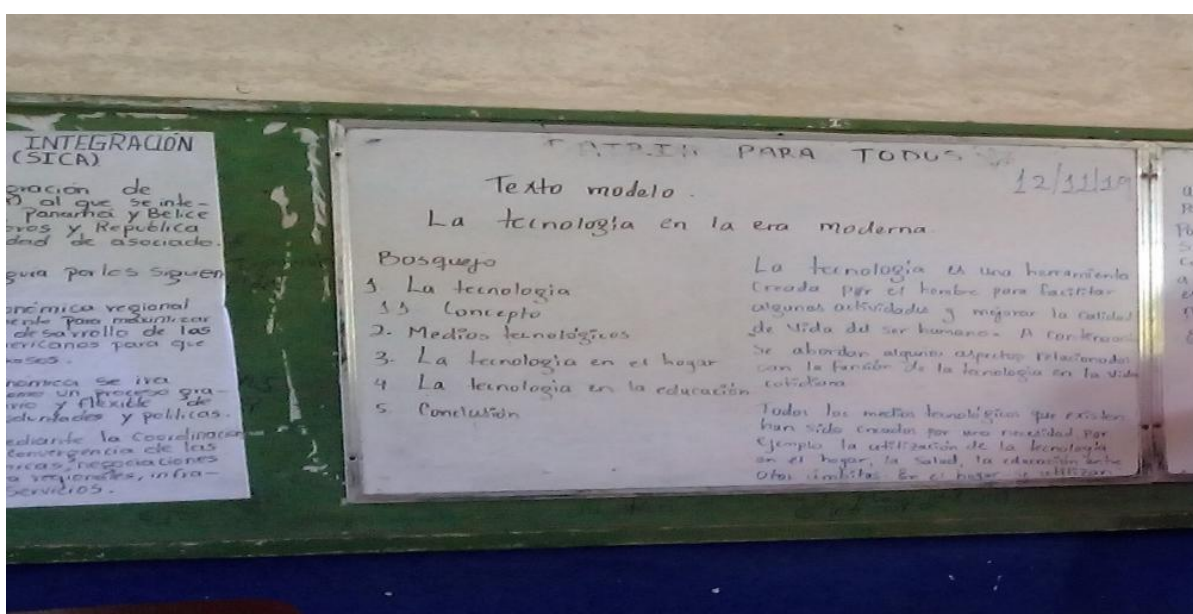 INTEGRACIÓN
(SICA)
oración de
al que se inte-
Panamá y Belice
eros y Republica
dad de asociado.
guía por los siguien
onómica regional
ente para maximizar
desarrollo de las
ericanos para que
nómica se ira
omo un proceso gra-
y flexible de
voluntades y politicas.
ediante la Coordinacion
convergencia de las
icas, negociaciones
a regionales, infra-
servicios.
PARA TODOS
12/11/19
Texto modelo.
La tecnología en la era moderna.
Bosquejo
1 La tecnologia
1.1 Concepto
2. Medios tecnológicos
3. La tecnologia en el hogar
4 La tecnologia en la educación
5. Conclusión
La tecnologia es una herramienta
Creada por el hombre para facilitar
algunas actividades y mejorar la calidad
de vida del ser humano. A continuaci
Se abordan algunos aspectos relacionados
con la función de la tecnologia en la vida
cotidiana
Todos los medios tecnológicos que existen
han sido creados por una necesidad. Por
Ejemplo la utilización de la tecnologia
en el hogar, la salud, la educación entre
Otros ámbitos En el hogar se utilizan